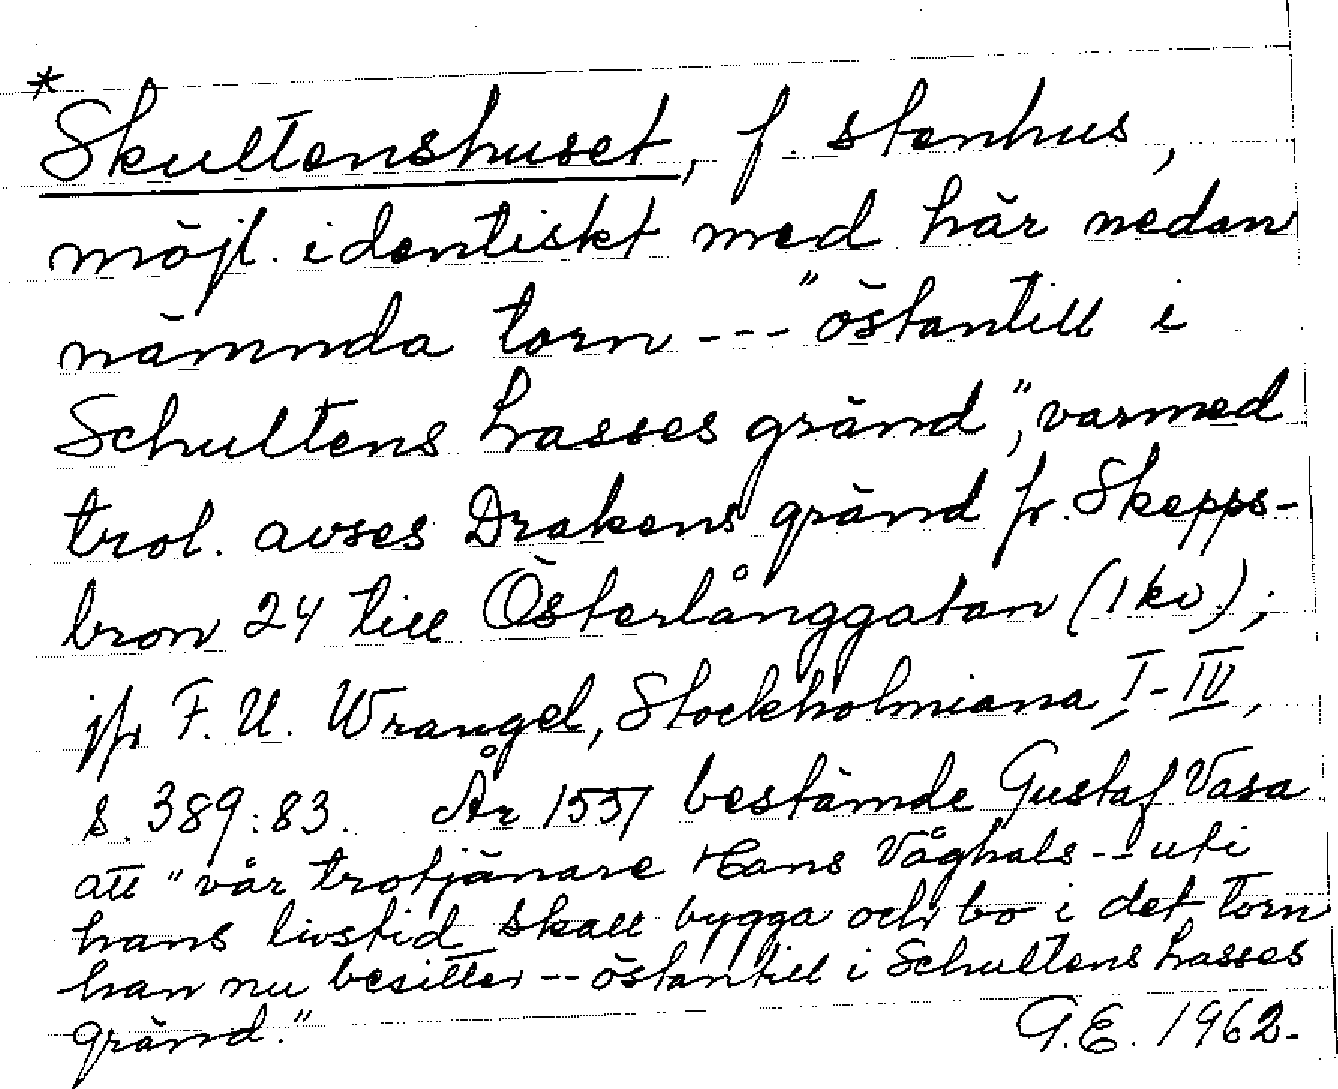 *
Skultenshuset, f. stenhus,
möjl. identiskt med här nedan
nämnda torn --- "östantill i
Schultens Lasses gränd", varmed
trol. avses Drakens gränd fr. Skepps-
bron 24 till Österlånggatan (1 kv);
jfr F. U. Wrangel, Stockholmiana I-IV,
s. 389:83. År 1557 bestämde Gustaf Vasa
att "vår trotjänare Hans Våghals -- uti
hans livstid skall bygga och bo i det torn
han nu besitter -- östantill i Schultens Lasses
gränd."
G.E. 1962.